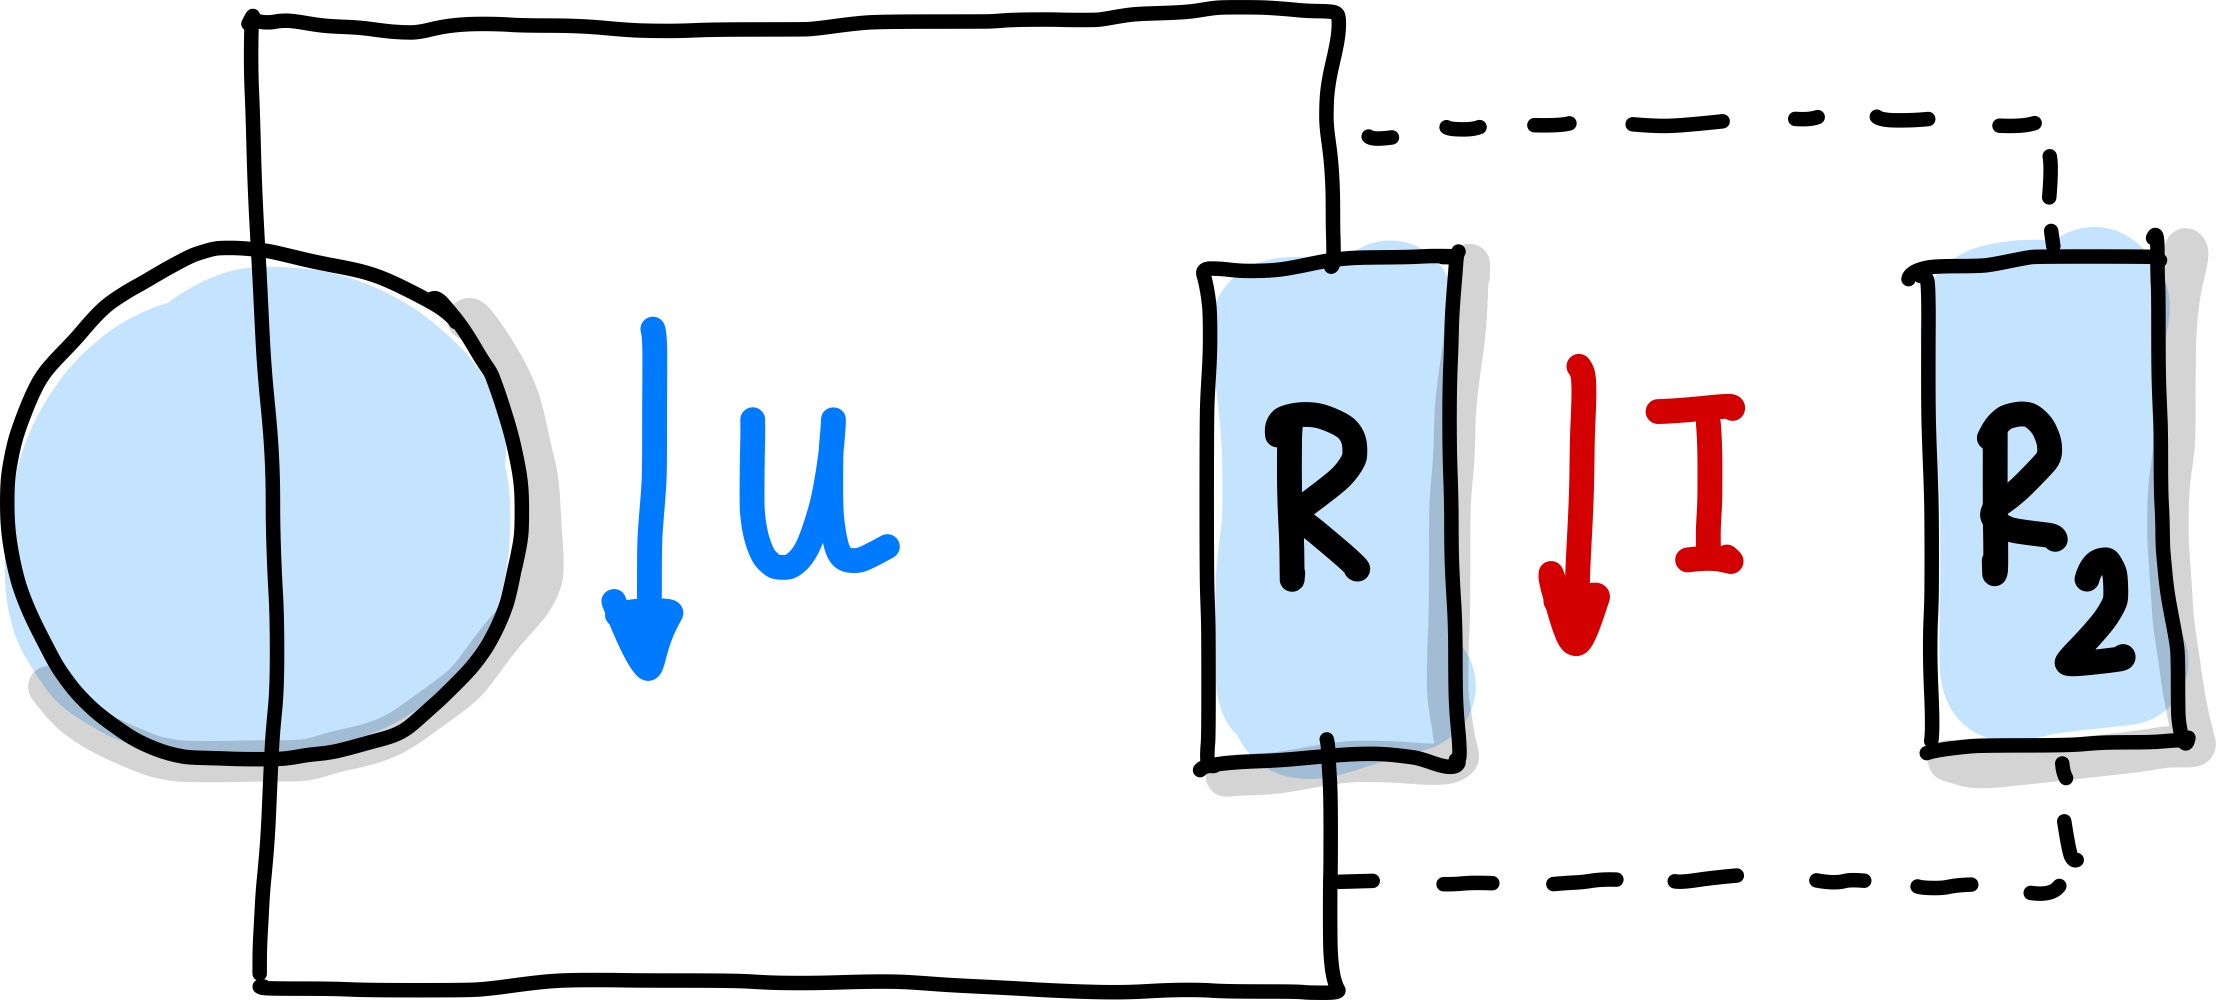 U
R
I
R2